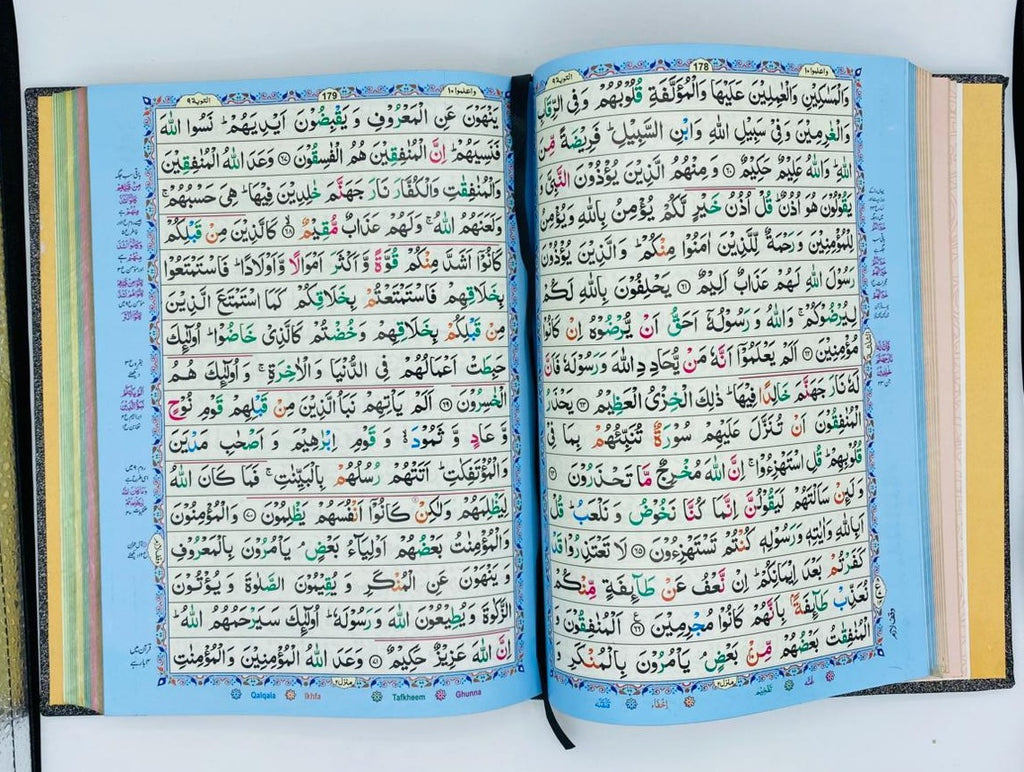 التوبة ٩
178
واعلموا ١٠
وَالْمَسٰكِيْنِ وَالْعٰمِلِيْنَ عَلَيْهَا وَالْمُؤَلَّفَةِ قُلُوْبُهُمْ وَفِى الرِّقَابِ
وَالْغٰرِمِيْنَ وَفِيْ سَبِيْلِ اللّٰهِ وَابْنِ السَّبِيْلِؕ فَرِيْضَةً مِّنَ
اللّٰهِؕ وَاللّٰهُ عَلِيْمٌ حَكِيْمٌ ۝٦٠ وَمِنْهُمُ الَّذِيْنَ يُؤْذُوْنَ النَّبِيَّ وَ
يَقُوْلُوْنَ هُوَ اُذُنٌؕ قُلْ اُذُنُ خَيْرٍ لَّكُمْ يُؤْمِنُ بِاللّٰهِ وَيُؤْمِنُ
لِلْمُؤْمِنِيْنَ وَرَحْمَةٌ لِّلَّذِيْنَ اٰمَنُوْا مِنْكُمْؕ وَالَّذِيْنَ يُؤْذُوْنَ
رَسُوْلَ اللّٰهِ لَهُمْ عَذَابٌ اَلِيْمٌ ۝٦١ يَحْلِفُوْنَ بِاللّٰهِ لَكُمْ
لِيُرْضُوْكُمْۚ وَاللّٰهُ وَرَسُوْلُهٗۤ اَحَقُّ اَنْ يُّرْضُوْهُ اِنْ كَانُوْا
مُؤْمِنِيْنَ ۝٦٢ اَلَمْ يَعْلَمُوْۤا اَنَّهٗ مَنْ يُّحَادِدِ اللّٰهَ وَرَسُوْلَهٗ فَاَنَّ
لَهٗ نَارَ جَهَنَّمَ خَالِدًا فِيْهَاؕ ذٰلِكَ الْخِزْيُ الْعَظِيْمُ ۝٦٣ يَحْذَرُ
الْمُنٰفِقُوْنَ اَنْ تُنَزَّلَ عَلَيْهِمْ سُوْرَةٌ تُنَبِّئُهُمْ بِمَا فِيْ
قُلُوْبِهِمْؕ قُلِ اسْتَهْزِءُوْاۚ اِنَّ اللّٰهَ مُخْرِجٌ مَّا تَحْذَرُوْنَ ۝٦٤
وَلَئِنْ سَاَلْتَهُمْ لَيَقُوْلُنَّ اِنَّمَا كُنَّا نَخُوْضُ وَنَلْعَبُؕ قُلْ
اَبِاللّٰهِ وَاٰيٰتِهٖ وَرَسُوْلِهٖ كُنْتُمْ تَسْتَهْزِءُوْنَ ۝٦٥ لَا تَعْتَذِرُوْا قَدْ
كَفَرْتُمْ بَعْدَ اِيْمَانِكُمْؕ اِنْ نَّعْفُ عَنْ طَآئِفَةٍ مِّنْكُمْ
نُعَذِّبْ طَآئِفَةًۢ بِاَنَّهُمْ كَانُوْا مُجْرِمِيْنَ ۝٦٦ اَلْمُنٰفِقُوْنَ وَ
الْمُنٰفِقٰتُ بَعْضُهُمْ مِّنْۢ بَعْضٍۘ يَاْمُرُوْنَ بِالْمُنْكَرِ وَ
منزل ٢
غنه
تفخيم
اخفاء
قلقله
التوبة ٩
179
واعلموا ١٠
يَنْهَوْنَ عَنِ الْمَعْرُوْفِ وَيَقْبِضُوْنَ اَيْدِيَهُمْؕ نَسُوا اللّٰهَ
فَنَسِيَهُمْؕ اِنَّ الْمُنٰفِقِيْنَ هُمُ الْفٰسِقُوْنَ ۝٦٧ وَعَدَ اللّٰهُ الْمُنٰفِقِيْنَ
وَالْمُنٰفِقٰتِ وَالْكُفَّارَ نَارَ جَهَنَّمَ خٰلِدِيْنَ فِيْهَاؕ هِيَ حَسْبُهُمْۚ
وَلَعَنَهُمُ اللّٰهُۚ وَلَهُمْ عَذَابٌ مُّقِيْمٌ ۝٦٨ كَالَّذِيْنَ مِنْ قَبْلِكُمْ
كَانُوْۤا اَشَدَّ مِنْكُمْ قُوَّةً وَّاَكْثَرَ اَمْوَالًا وَّاَوْلَادًاؕ فَاسْتَمْتَعُوْا
بِخَلَاقِهِمْ فَاسْتَمْتَعْتُمْ بِخَلَاقِكُمْ كَمَا اسْتَمْتَعَ الَّذِيْنَ
مِنْ قَبْلِكُمْ بِخَلَاقِهِمْ وَخُضْتُمْ كَالَّذِيْ خَاضُوْاؕ اُولٰٓئِكَ
حَبِطَتْ اَعْمَالُهُمْ فِى الدُّنْيَا وَالْاٰخِرَةِۚ وَاُولٰٓئِكَ هُمُ
الْخٰسِرُوْنَ ۝٦٩ اَلَمْ يَاْتِهِمْ نَبَاُ الَّذِيْنَ مِنْ قَبْلِهِمْ قَوْمِ نُوْحٍ
وَّعَادٍ وَّثَمُوْدَ وَقَوْمِ اِبْرٰهِيْمَ وَاَصْحٰبِ مَدْيَنَ
وَالْمُؤْتَفِكٰتِؕ اَتَتْهُمْ رُسُلُهُمْ بِالْبَيِّنٰتِۚ فَمَا كَانَ اللّٰهُ
لِيَظْلِمَهُمْ وَلٰكِنْ كَانُوْۤا اَنْفُسَهُمْ يَظْلِمُوْنَ ۝٧٠ وَالْمُؤْمِنُوْنَ
وَالْمُؤْمِنٰتُ بَعْضُهُمْ اَوْلِيَآءُ بَعْضٍۘ يَاْمُرُوْنَ بِالْمَعْرُوْفِ
وَيَنْهَوْنَ عَنِ الْمُنْكَرِ وَيُقِيْمُوْنَ الصَّلٰوةَ وَيُؤْتُوْنَ
الزَّكٰوةَ وَيُطِيْعُوْنَ اللّٰهَ وَرَسُوْلَهٗؕ اُولٰٓئِكَ سَيَرْحَمُهُمُ اللّٰهُؕ
اِنَّ اللّٰهَ عَزِيْزٌ حَكِيْمٌ ۝٧١ وَعَدَ اللّٰهُ الْمُؤْمِنِيْنَ وَالْمُؤْمِنٰتِ
منزل ٢
Qalqala Ikhfa Tafkheem Ghunna